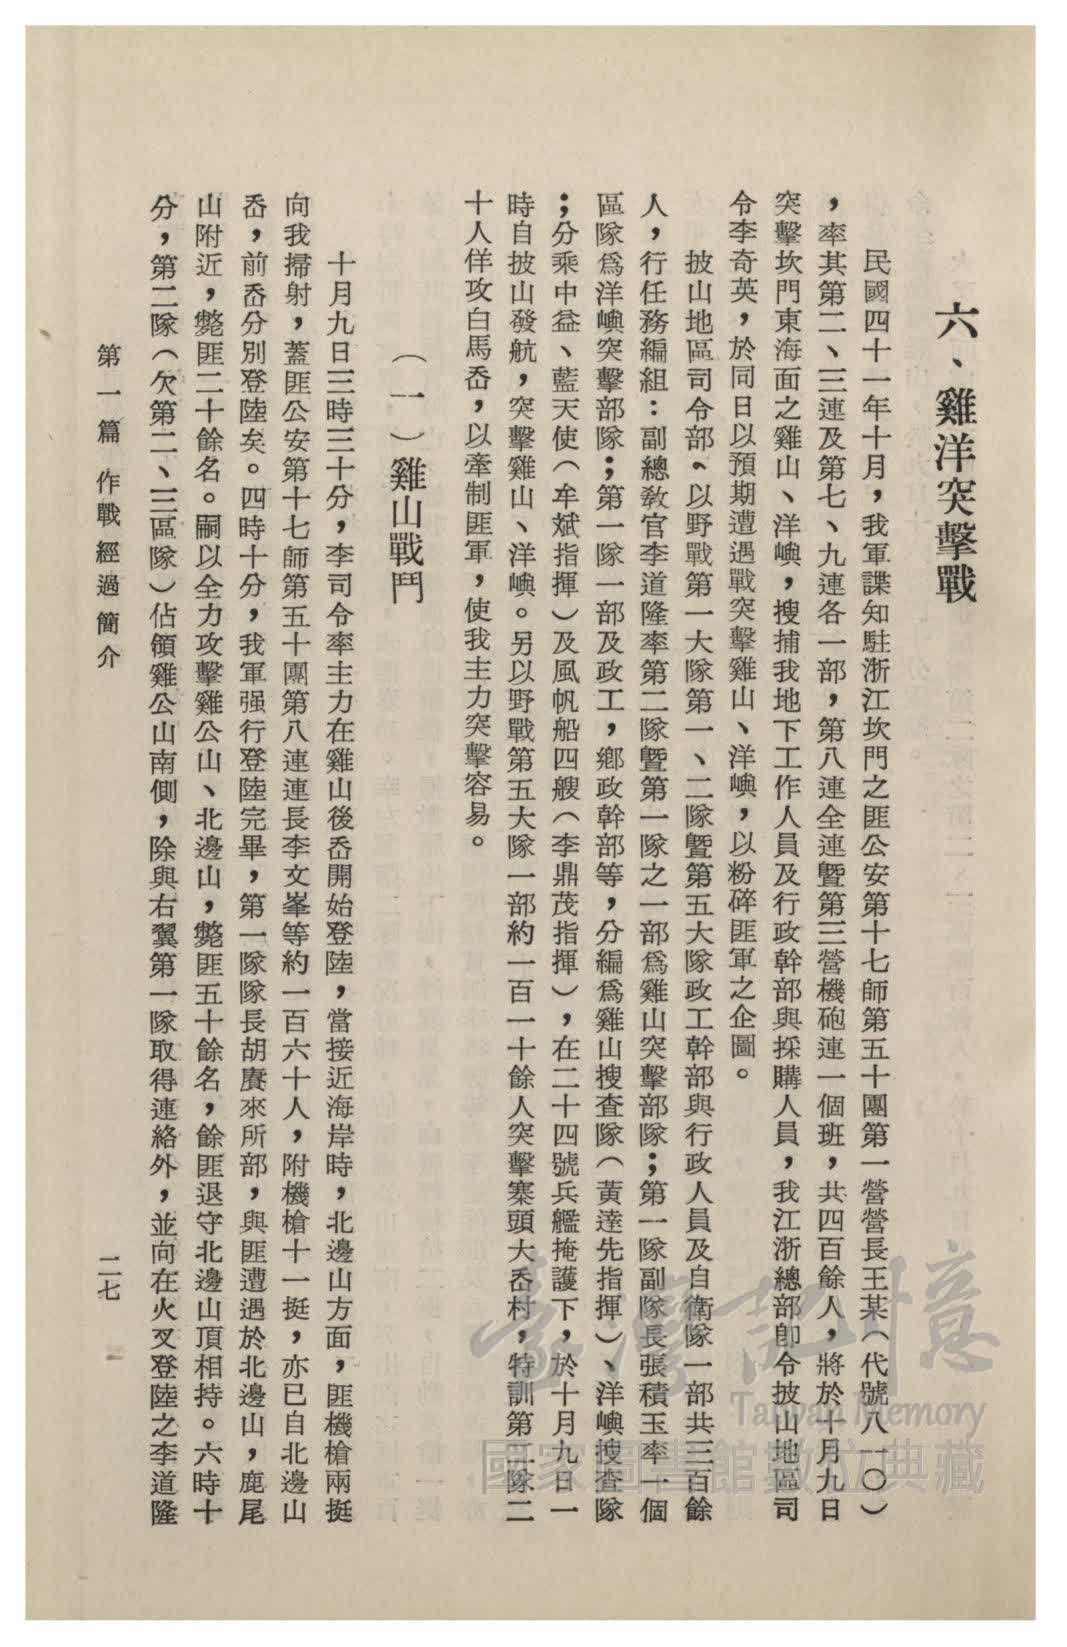 六、雞洋突擊戰
民國四十一年十月，我軍諜知駐浙江坎門之匪公安第十七師第五十團第一營營長王某（代號八一〇）
，率其第二、三連及第七、九連各一部，第八連全連暨第三營機砲連一個班，共四百餘人，將於十月九日
突擊坎門東海面之雞山、洋嶼，搜捕我地下工作人員及行政幹部與採購人員，我江浙總部卽令披山地區司
令李奇英，於同日以預期遭遇戰突擊雞山、洋嶼，以粉碎匪軍之企圖。
披山地區司令部、以野戰第一大隊第一、二隊暨第五大隊政工幹部與行政人員及自衛隊一部共三百餘
人，行任務編組：副總教官李道隆率第二隊暨第一隊之一部爲雞山突擊部隊；第一隊副隊長張積玉率一個
區隊爲洋嶼突擊部隊；第一隊一部及政工，鄉政幹部等，分編爲雞山搜查隊（黃達先指揮）、洋嶼搜查隊
；分乘中益、藍天使（牟斌指揮）及風帆船四艘（李鼎茂指揮），在二十四號兵艦掩護下，於十月九日一
時自披山發航，突擊雞山、洋嶼。另以野戰第五大隊一部約一百一十餘人突擊寨頭大岙村，特訓第二隊二
十人佯攻白馬岙，以牽制匪軍，使我主力突擊容易。
（一）雞山戰鬥
十月九日三時三十分，李司令率主力在雞山後岙開始登陸，當接近海岸時，北邊山方面，匪機槍兩挺
向我掃射，蓋匪公安第十七師第五十團第八連連長李文峯等約一百六十人，附機槍十一挺，亦已自北邊山
岙，前岙分別登陸矣。四時十分，我軍强行登陸完畢，第一隊隊長胡賡來所部，與匪遭遇於北邊山，鹿尾
山附近，斃匪二十餘名。嗣以全力攻擊雞公山、北邊山，斃匪五十餘名，餘匪退守北邊山頂相持。六時十
分，第二隊（欠第二、三區隊）佔領雞公山南側，除與右翼第一隊取得連絡外，並向在火叉登陸之李道隆
第一篇 作戰經過簡介
二七
臺灣記憶
Taiwan Memory
國家圖書館數位典藏